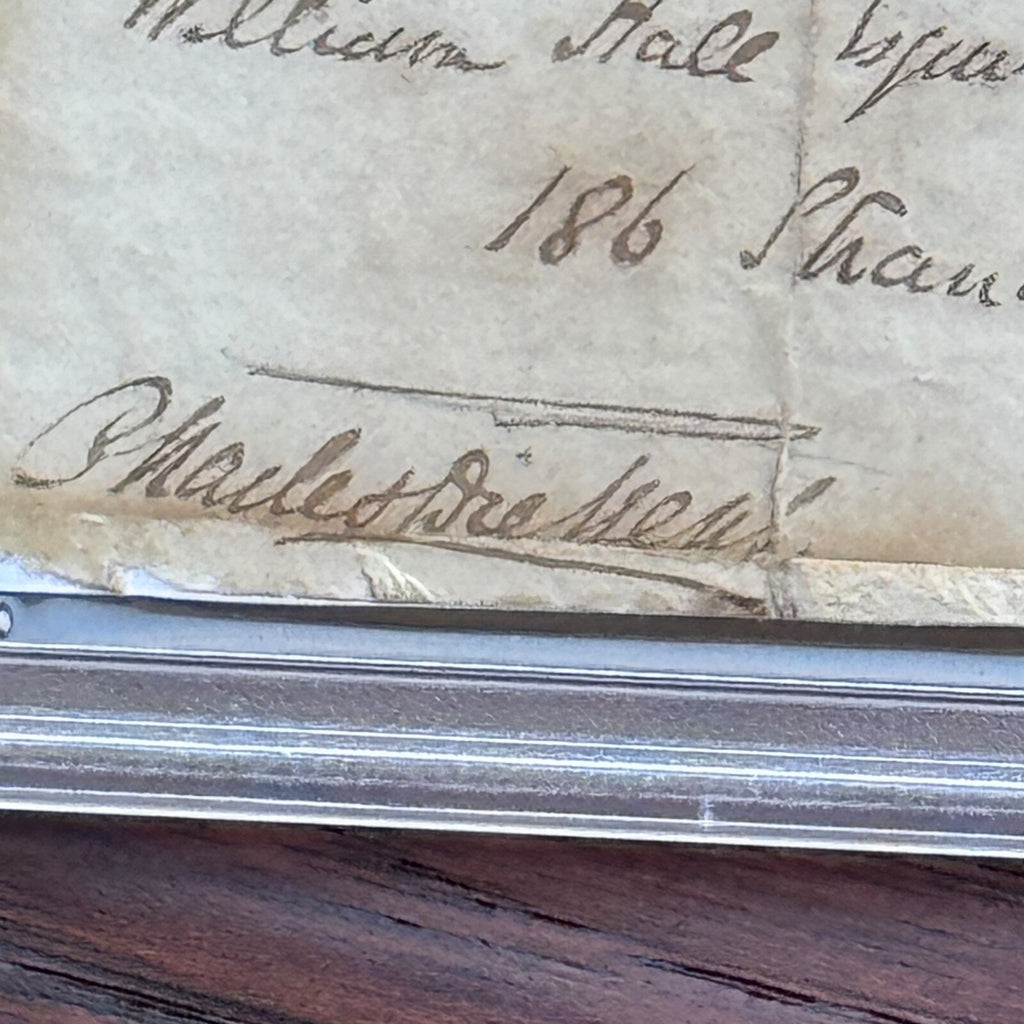 William Hall Esquire
186 Strand
Charles Dickens